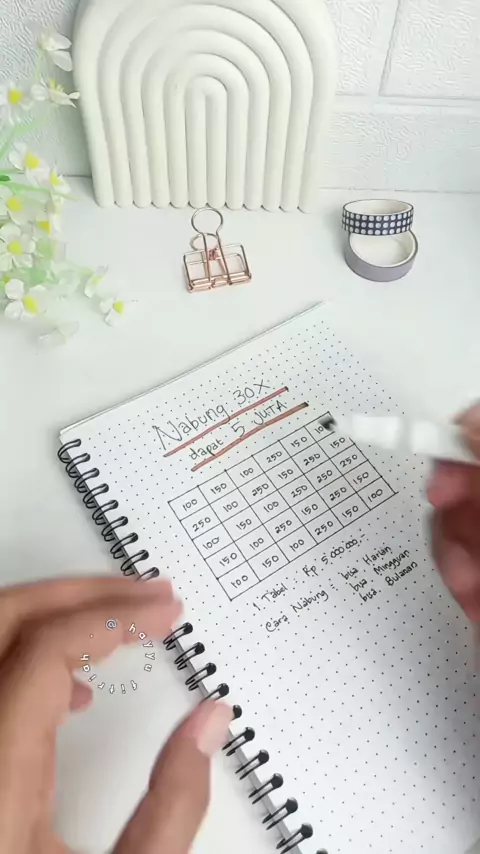 Nabung 30X
dapat 5 JUTA
100 150 100 250 150 100
250 100 250 100 250 150
100 250 150 250 100 250
150 100 250 150 250 150
100 150 100 250 150 100
1 Tabel : Rp 5.000.000,-
Cara Nabung : bisa Harian
bisa Mingguan
bisa Bulanan
@hayyu.fitriah